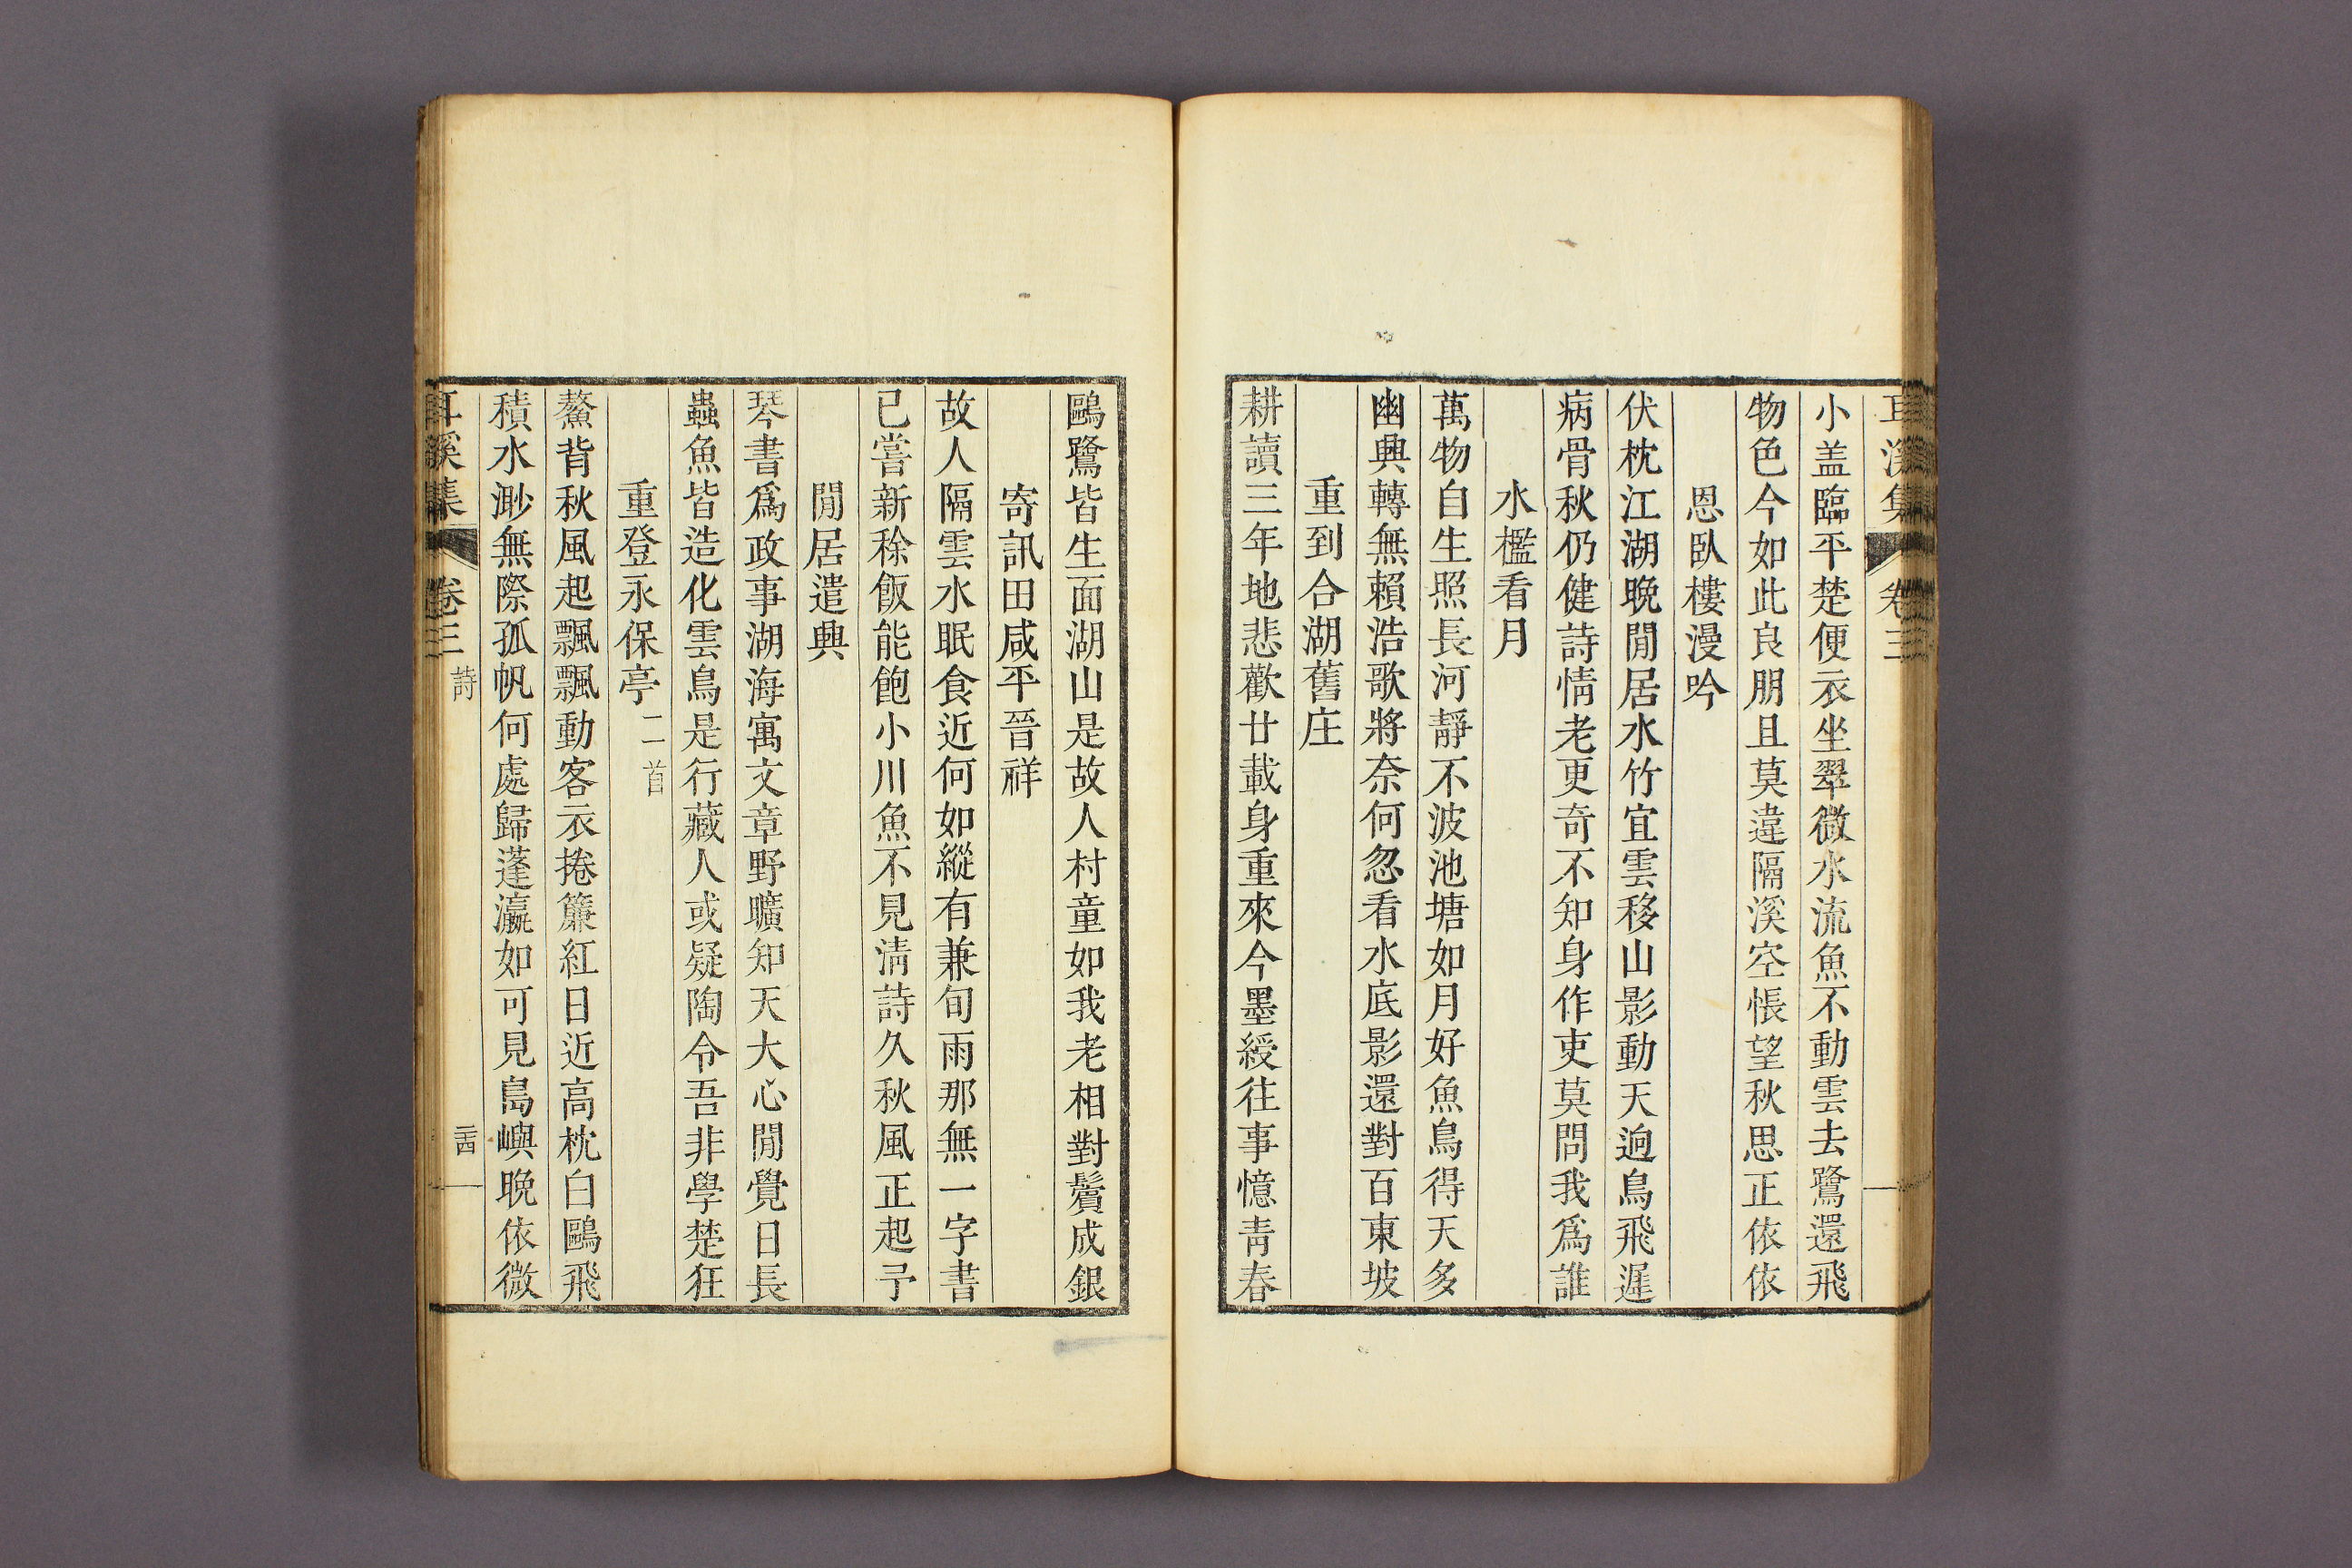 耳溪集 卷三
小盖臨平楚便衣坐翠微水流魚不動雲去鷺還飛
物色今如此良朋且莫違隔溪空悵望秋思正依依
恩臥樓漫吟
伏枕江湖晚閒居水竹宜雲移山影動天逈鳥飛遲
病骨秋仍健詩情老更奇不知身作吏莫問我爲誰
水檻看月
萬物自生照長河靜不波池塘如月好魚鳥得天多
幽興轉無賴浩歌將奈何忽看水底影還對百東坡
重到合湖舊庄
耕讀三年地悲歡廿載身重來今墨綬往事憶靑春
鷗鷺皆生面湖山是故人村童如我老相對鬢成銀
寄訊田咸平晉祥
故人隔雲水眠食近何如縱有兼旬雨那無一字書
已嘗新稌飯能飽小川魚不見淸詩久秋風正起予
閒居遣興
琴書爲政事湖海寓文章野曠知天大心閒覺日長
蟲魚皆造化雲鳥是行藏人或疑陶令吾非學楚狂
重登永保亭 二首
鰲背秋風起飄飄動客衣捲簾紅日近高枕白鷗飛
積水渺無際孤帆何處歸蓬瀛如可見島嶼晩依微
耳溪集 卷三 詩 二十四